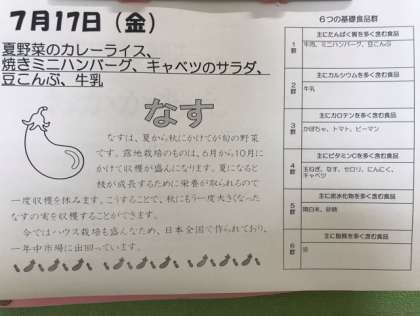 7月17日（金）
夏野菜のカレーライス、
焼きミニハンバーグ、キャベツのサラダ、
豆こんぶ、牛乳
なす
なすは、夏から秋にかけてが旬の野菜
です。露地栽培のものは、6月から10月に
かけて収穫が盛んになります。夏になると
枝が成長するために栄養が取られるので
一度収穫を休みます。こうすることで、秋にもう一度大きくなった
なすの実を収穫することができます。
今ではハウス栽培も盛んなため、日本全国で作られており、
一年中市場に出回っています。
6つの基礎食品群
主にたんぱく質を多く含む食品
1群
牛肉、ミニハンバーグ、豆こんぶ
主にカルシウムを多く含む食品
2群
牛乳
主にカロテンを多く含む食品
3群
かぼちゃ、トマト、ピーマン
主にビタミンCを多く含む食品
4群
玉ねぎ、なす、セロリ、にんにく、
キャベツ
主に炭水化物を多く含む食品
5群
精白米、砂糖
主に脂質を多く含む食品
6群
油